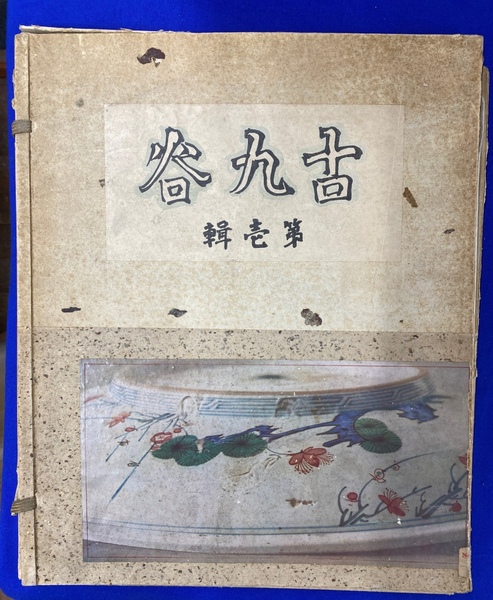 古九谷
第壱輯